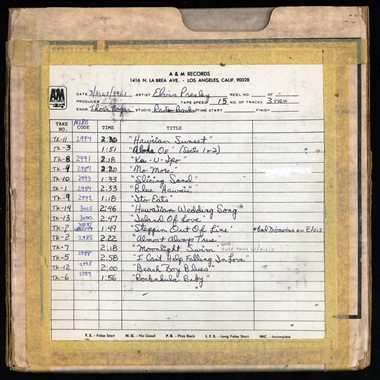 A & M RECORDS
1416 N. LA BREA AVE. - LOS ANGELES, CALIF. 90028
A&M RECORDS
DATE ARTIST Elvis Presley REEL NO. - OF -
PRODUCER TAPE SPEED 15 NO. OF TRACKS 3 TRK
ENGR. Thorn Nogar STUDIO Radio Recorders START: FINISH:
TAKE NO. CODE TIME TITLE
TK-11 2984 "Hawaiian Sunset"
TK-3 1:51 "Aloha Oe" (Seits 1+2)
TK-8 2991 2:18 "Ku-U-Ipo"
TK-4 2987 2:20 "No More"
TK-10 2993 1:33 "Slicing Sand"
TK-1 2989 2:33 "Blue Hawaii"
TK-9 2992 1:18 "Ito Eats"
TK-14 3005 2:46 "Hawaiian Wedding Song"
TK-13 3000 2:47 "Island Of Love"
TK-2 1:49 "Steppin Out Of Line" *Bad Dimensions on Elvis
TK-2 2985 2:22 "Almost Always True"
TK-7 2:18 "Moonlight Swim"
TK-5 2988 2:58 "I Can't Help Falling In Love"
TK-12 2:00 "Beach Boy Blues"
TK-6 2994 1:56 "Rockahula Baby"
F.S. - False Start N.G. - No Good P.B. - Play Back L.F.S. - Long False Start INC. - Incomplete